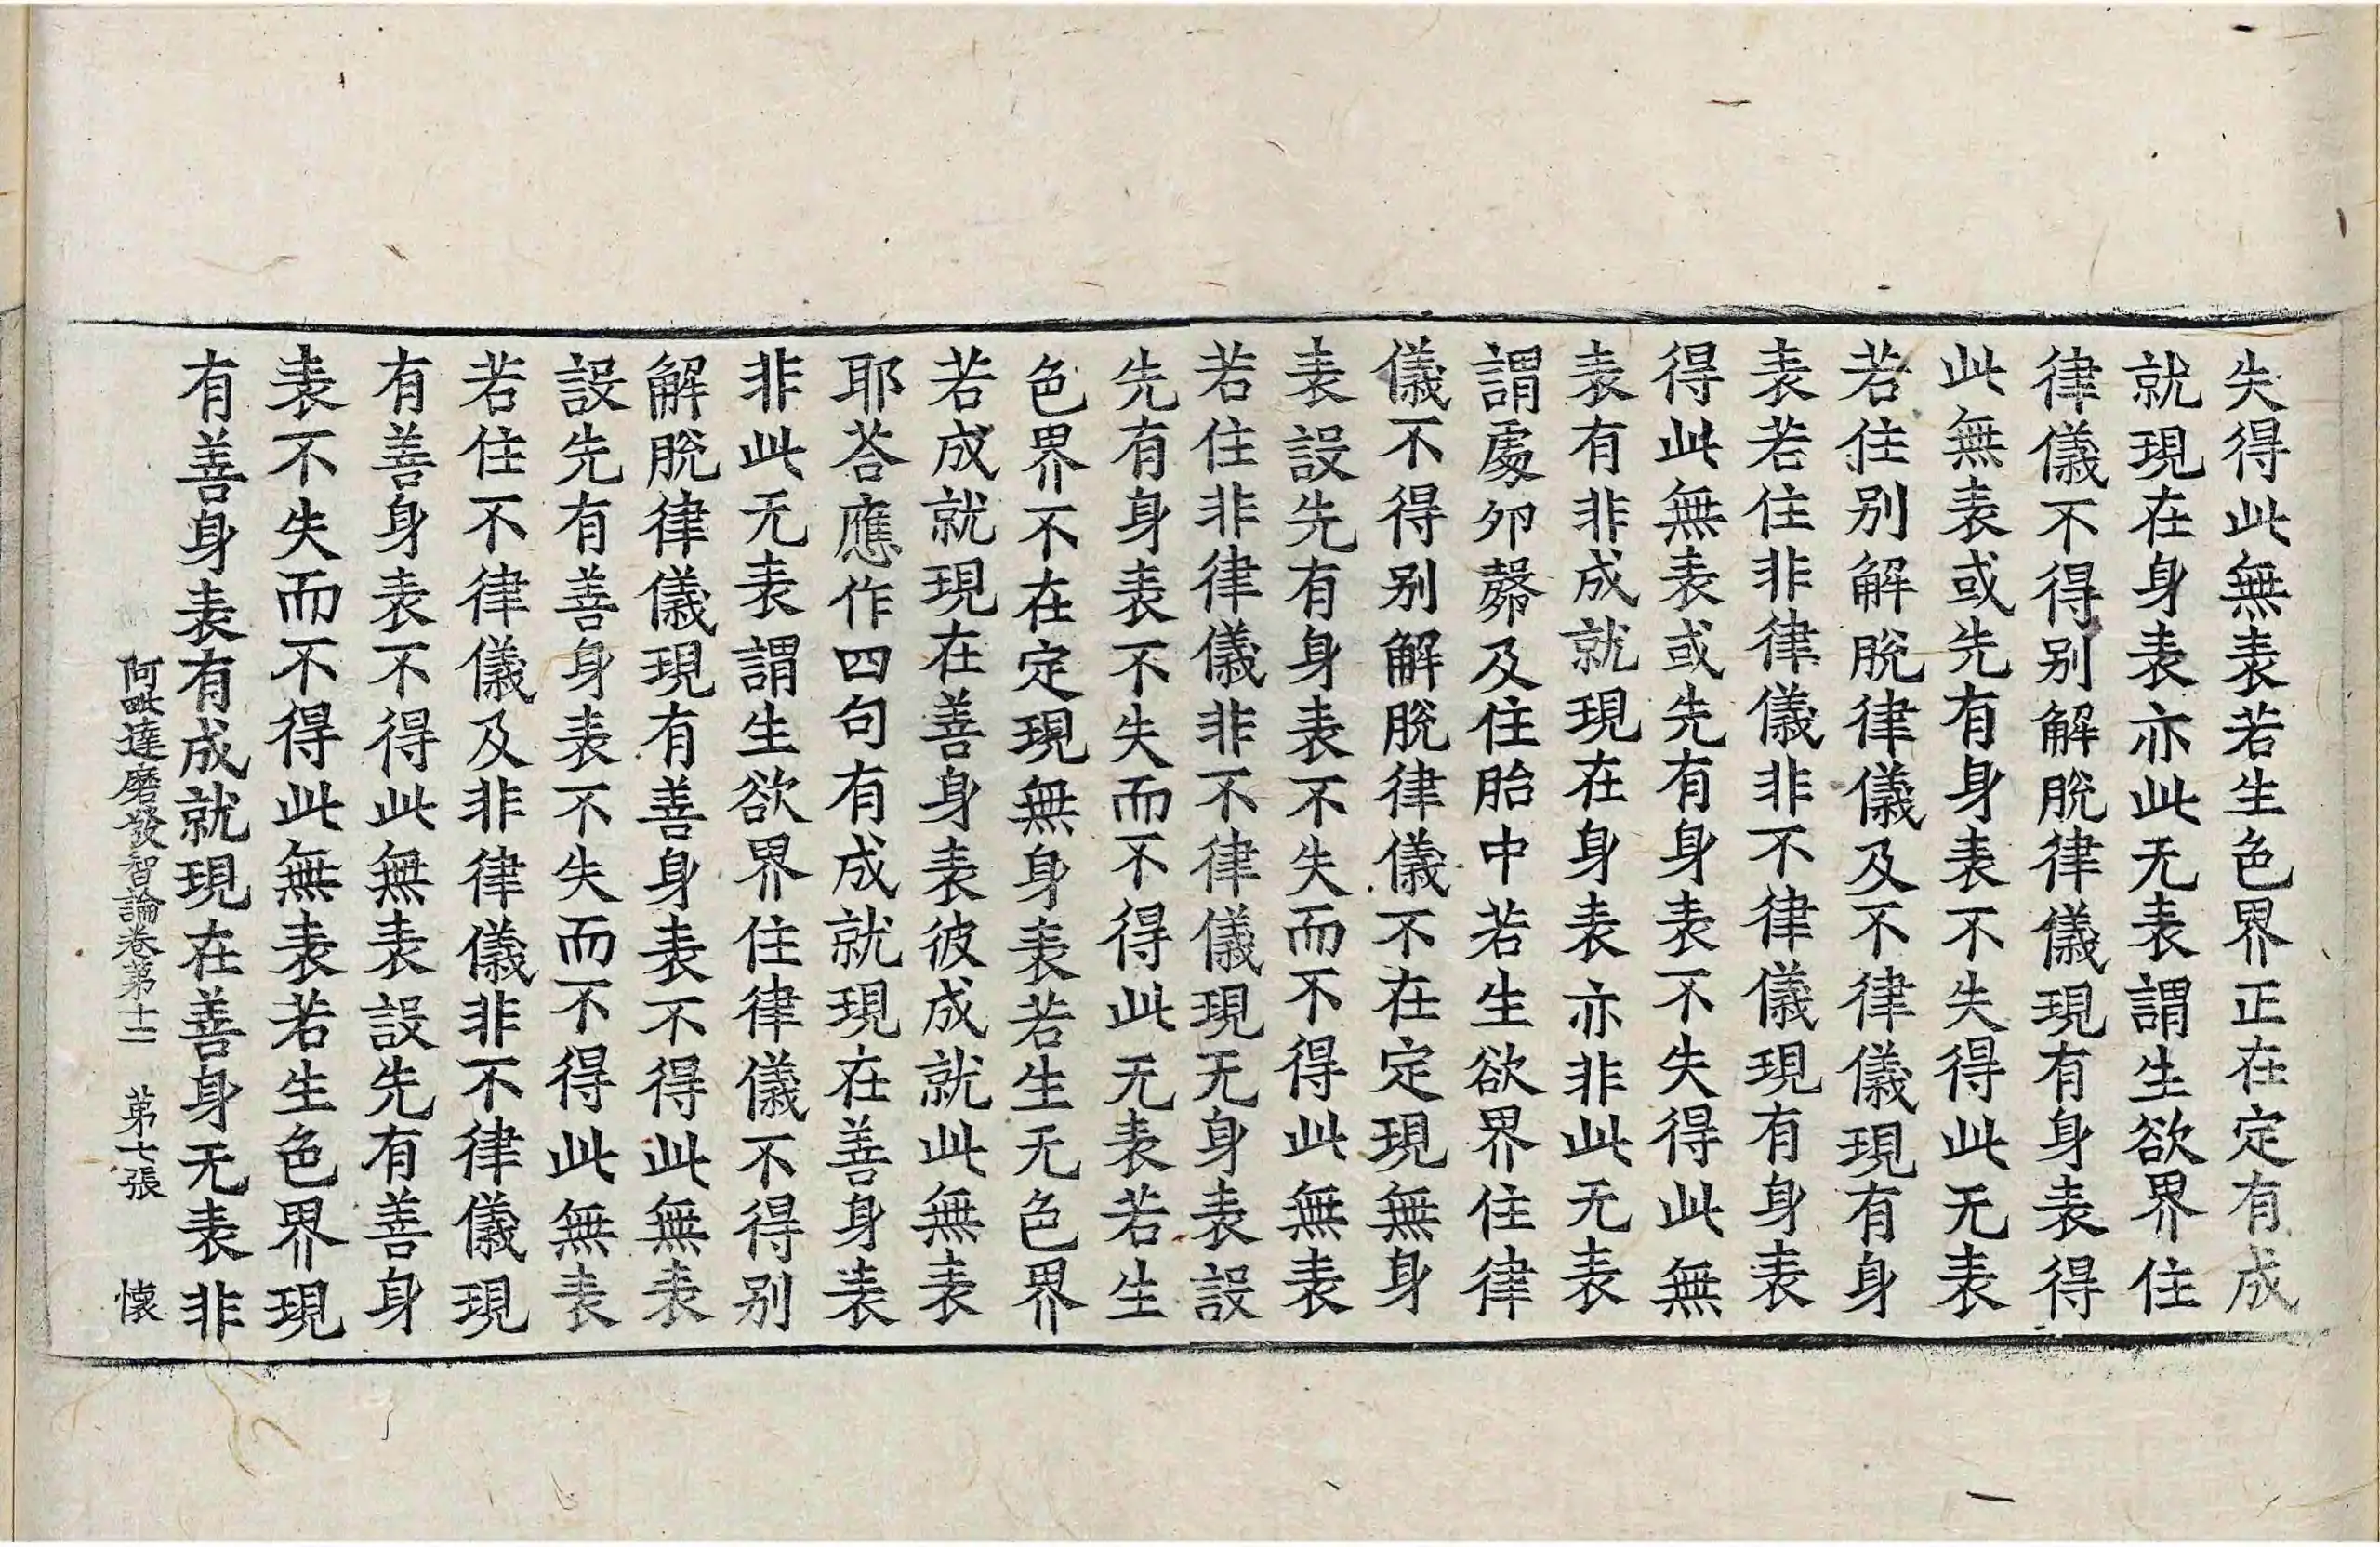 失得此無表若生色界正在定有成
就現在身表亦此无表謂生欲界住
律儀不得别解脫律儀現有身表得
此無表或先有身表不失得此无表
若住别解脫律儀及不律儀現有身
表若住非律儀非不律儀現有身表
得此無表或先有身表不失得此無
表有非成就現在身表亦非此无表
謂處夘㲉及住胎中若生欲界住律
儀不得别解脫律儀不在定現無身
表設先有身表不失而不得此無表
若住非律儀非不律儀現无身表設
先有身表不失而不得此无表若生
色界不在定現無身表若生无色界
若成就現在善身表彼成就此無表
耶荅應作四句有成就現在善身表
非此无表謂生欲界住律儀不得别
解脫律儀現有善身表不得此無表
設先有善身表不失而不得此無表
若住不律儀及非律儀非不律儀現
有善身表不得此無表設先有善身
表不失而不得此無表若生色界現
有善身表有成就現在善身无表非
阿毗達磨發智論卷苐十二 苐七張 懷